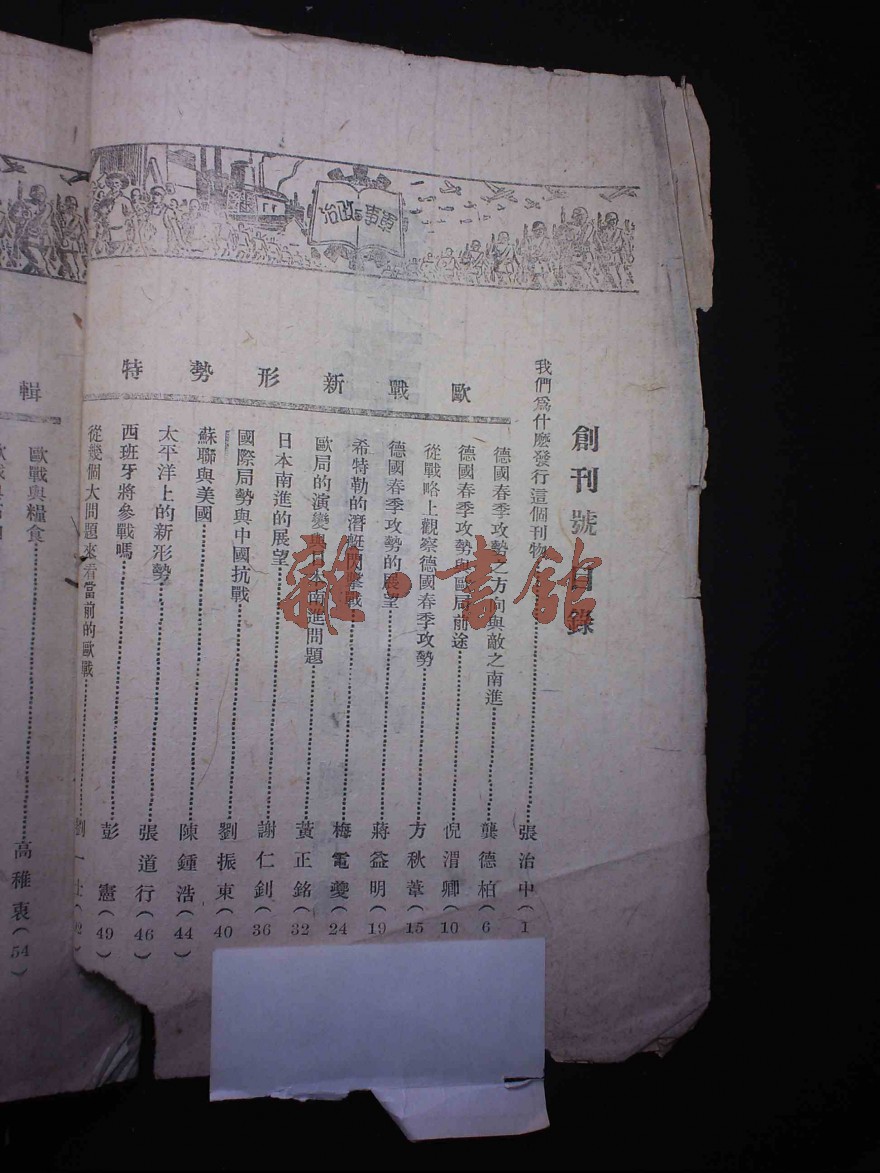 軍事與政治
創刊號目錄
我們爲什麽發行這個刊物 張治中(1
歐戰新形勢特輯
德國春季攻勢之方向與敵之南進 龔德柏(6
德國春季攻勢與歐局前途 倪渭卿(10
從戰略上觀察德國春季攻勢 方秋葦(15
德國春季攻勢的展望 蔣益明(19
希特勒的潛艇閃擊戰 梅電夔(24
歐局的演變與日本南進問題 黃正銘(32
日本南進的展望 謝仁釗(36
國際局勢與中國抗戰 劉振東(40
蘇聯與美國 陳鍾浩(44)
太平洋上的新形勢 張道行(46)
西班牙將參戰嗎 彭憲(49)
從幾個大問題來看當前的歐戰 劉一
歐戰與糧食 高稚衷(54)
雜·書館